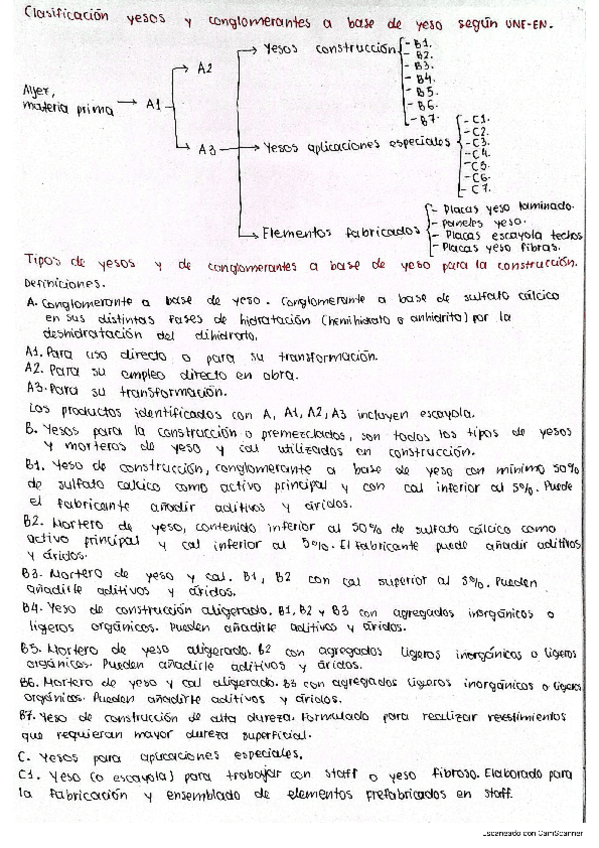 Clasificación yesos y conglomerantes a base de yeso según UNE-EN.
Aljez, materia prima → A1
A2
A3
Yesos construcción
- B1.
- B2.
- B3.
- B4.
- B5.
- B6.
- B7.
Yesos aplicaciones especiales
- C1.
- C2.
- C3.
- C4.
- C5.
- C6.
- C7.
Elementos fabricados
- Placas yeso laminado.
- Paneles yeso.
- Placas escayola techos
- Placas yeso fibras.
Tipos de yesos y de conglomerantes a base de yeso para la construcción.
Definiciones.
A. Conglomerante a base de yeso. Conglomerante a base de sulfato cálcico
en sus distintas fases de hidratación (hemihidrato o anhidrita) por la
deshidratación del dihidrato.
A1. Para uso directo o para su transformación.
A2. Para su empleo directo en obra.
A3. Para su transformación.
Los productos identificados con A, A1, A2, A3 incluyen escayola.
B. Yesos para la construcción o premezclados, son todos los tipos de yesos
y morteros de yeso y cal utilizados en construcción.
B1. Yeso de construcción, conglomerante a base de yeso con mínimo 50%
de sulfato calcico como activo principal y con cal inferior al 5%. Puede
el fabricante añadir aditivos y áridos.
B2. Mortero de yeso, contenido inferior al 50% de sulfato cálcico como
activo principal y cal inferior al 5%. El fabricante puede añadir aditivos
y áridos.
B3. Mortero de yeso y cal. B1, B2 con cal superior al 5%. Pueden
añadirle aditivos y áridos.
B4. Yeso de construcción aligerado. B1, B2 y B3 con agregados inorgánicos o
ligeros orgánicos. Pueden añadirle aditivos y áridos.
B5. Mortero de yeso aligerado. B2 con agregados ligeros inorgánicos o ligeros
orgánicos. Pueden añadirle aditivos y áridos.
B6. Mortero de yeso y cal aligerado. B3 con agregados ligeros inorgánicos o ligeros
orgánicos. Pueden añadirle aditivos y áridos.
B7. Yeso de construcción de alta dureza. Formulado para realizar
que requieran mayor dureza superficial.
C. Yesos para aplicaciones especiales.
C1. Yeso (o escayola) para trabajar con staff o yeso fibroso. Elaborado para
la fabricación y ensemblado de elementos prefabricados en staff.
Escaneado con CamScanner